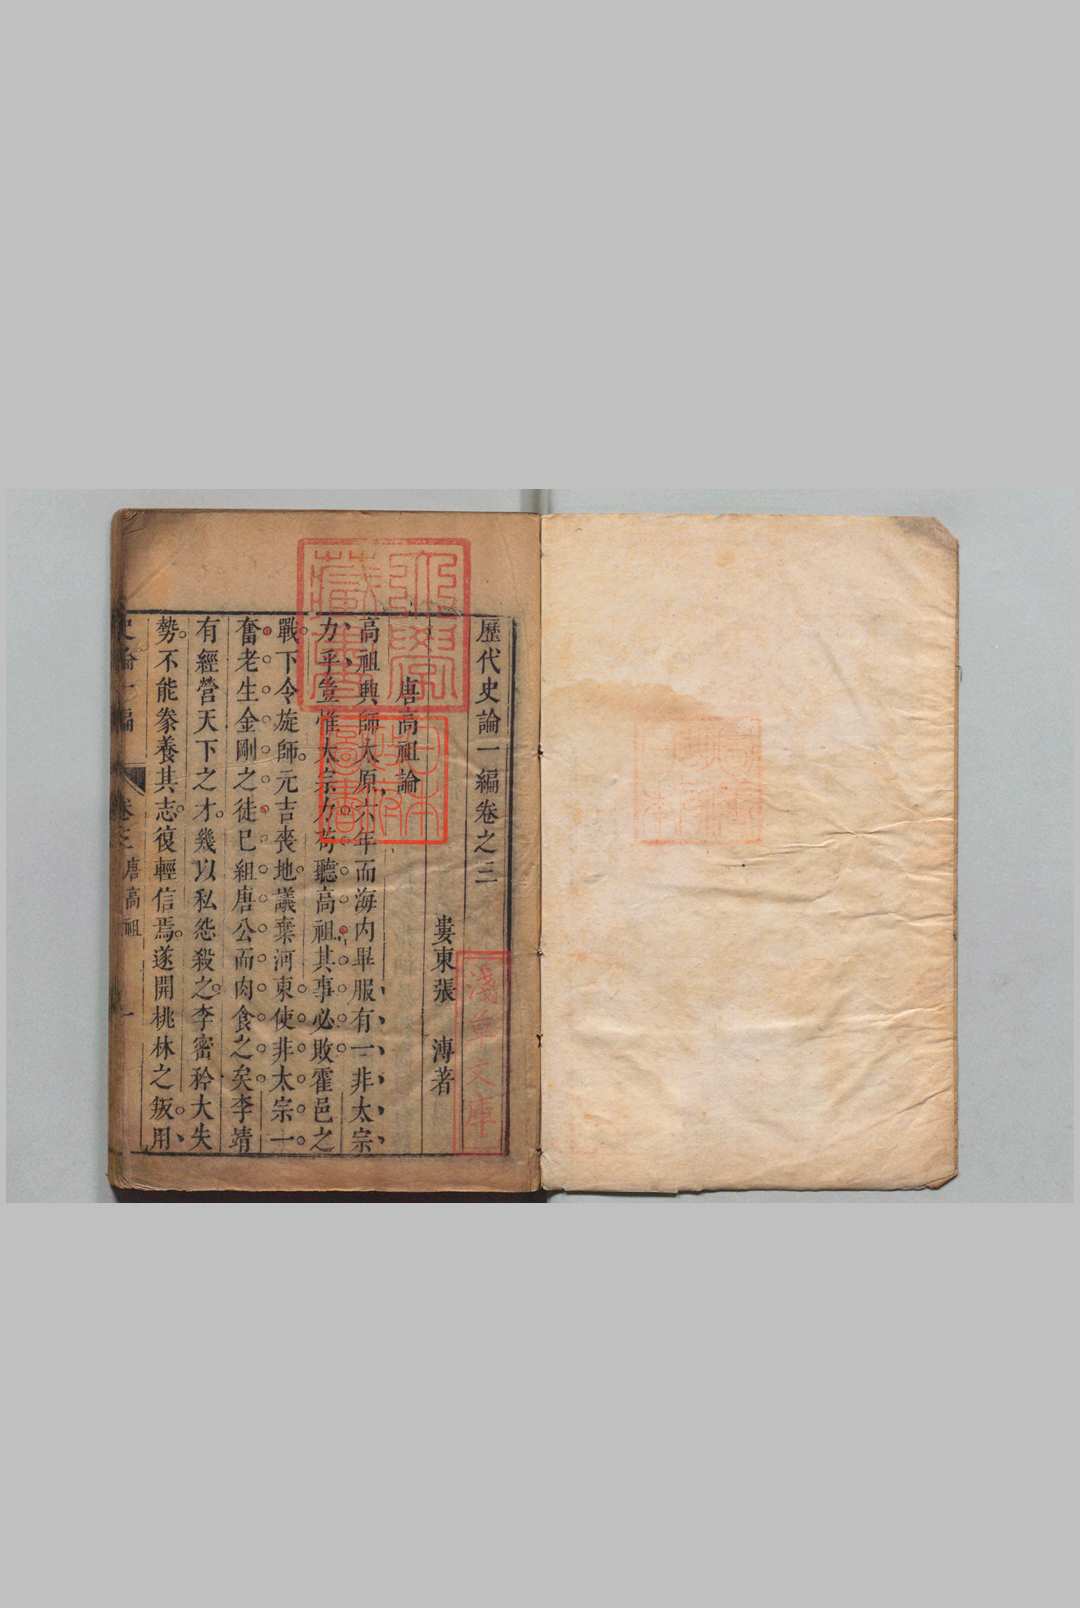 歷代史論一編卷之三
婁東張　溥著
唐高祖論
高祖興師太原六年而海內畢服有一非太宗
力乎豈惟太宗力苟聽高祖其事必敗霍邑之
戰下令旋師元吉喪地議棄河東使非太宗一
奮老生金剛之徒已組唐公而肉食之矣李靖
有經營天下之才幾以私怨殺之李密矜大失
勢不能豢養其志復輕信焉遂開桃林之叛用
史論一編
卷三
唐高祖
一
淺草文庫